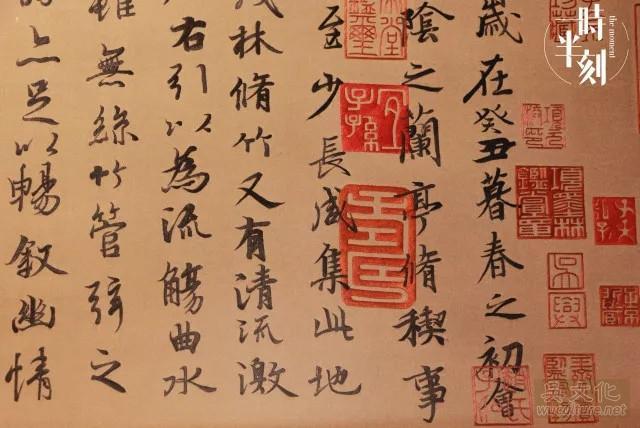 歲在癸丑暮春之初會
陰之蘭亭脩稧事
至少長咸集此地
茂林脩竹又有清流激
右引以為流觴曲水
雖無絲竹管弦之
亦足以暢叙幽情
子孫
項墨林鑑賞章
時半刻
the moment
吳文化
wuculture.net